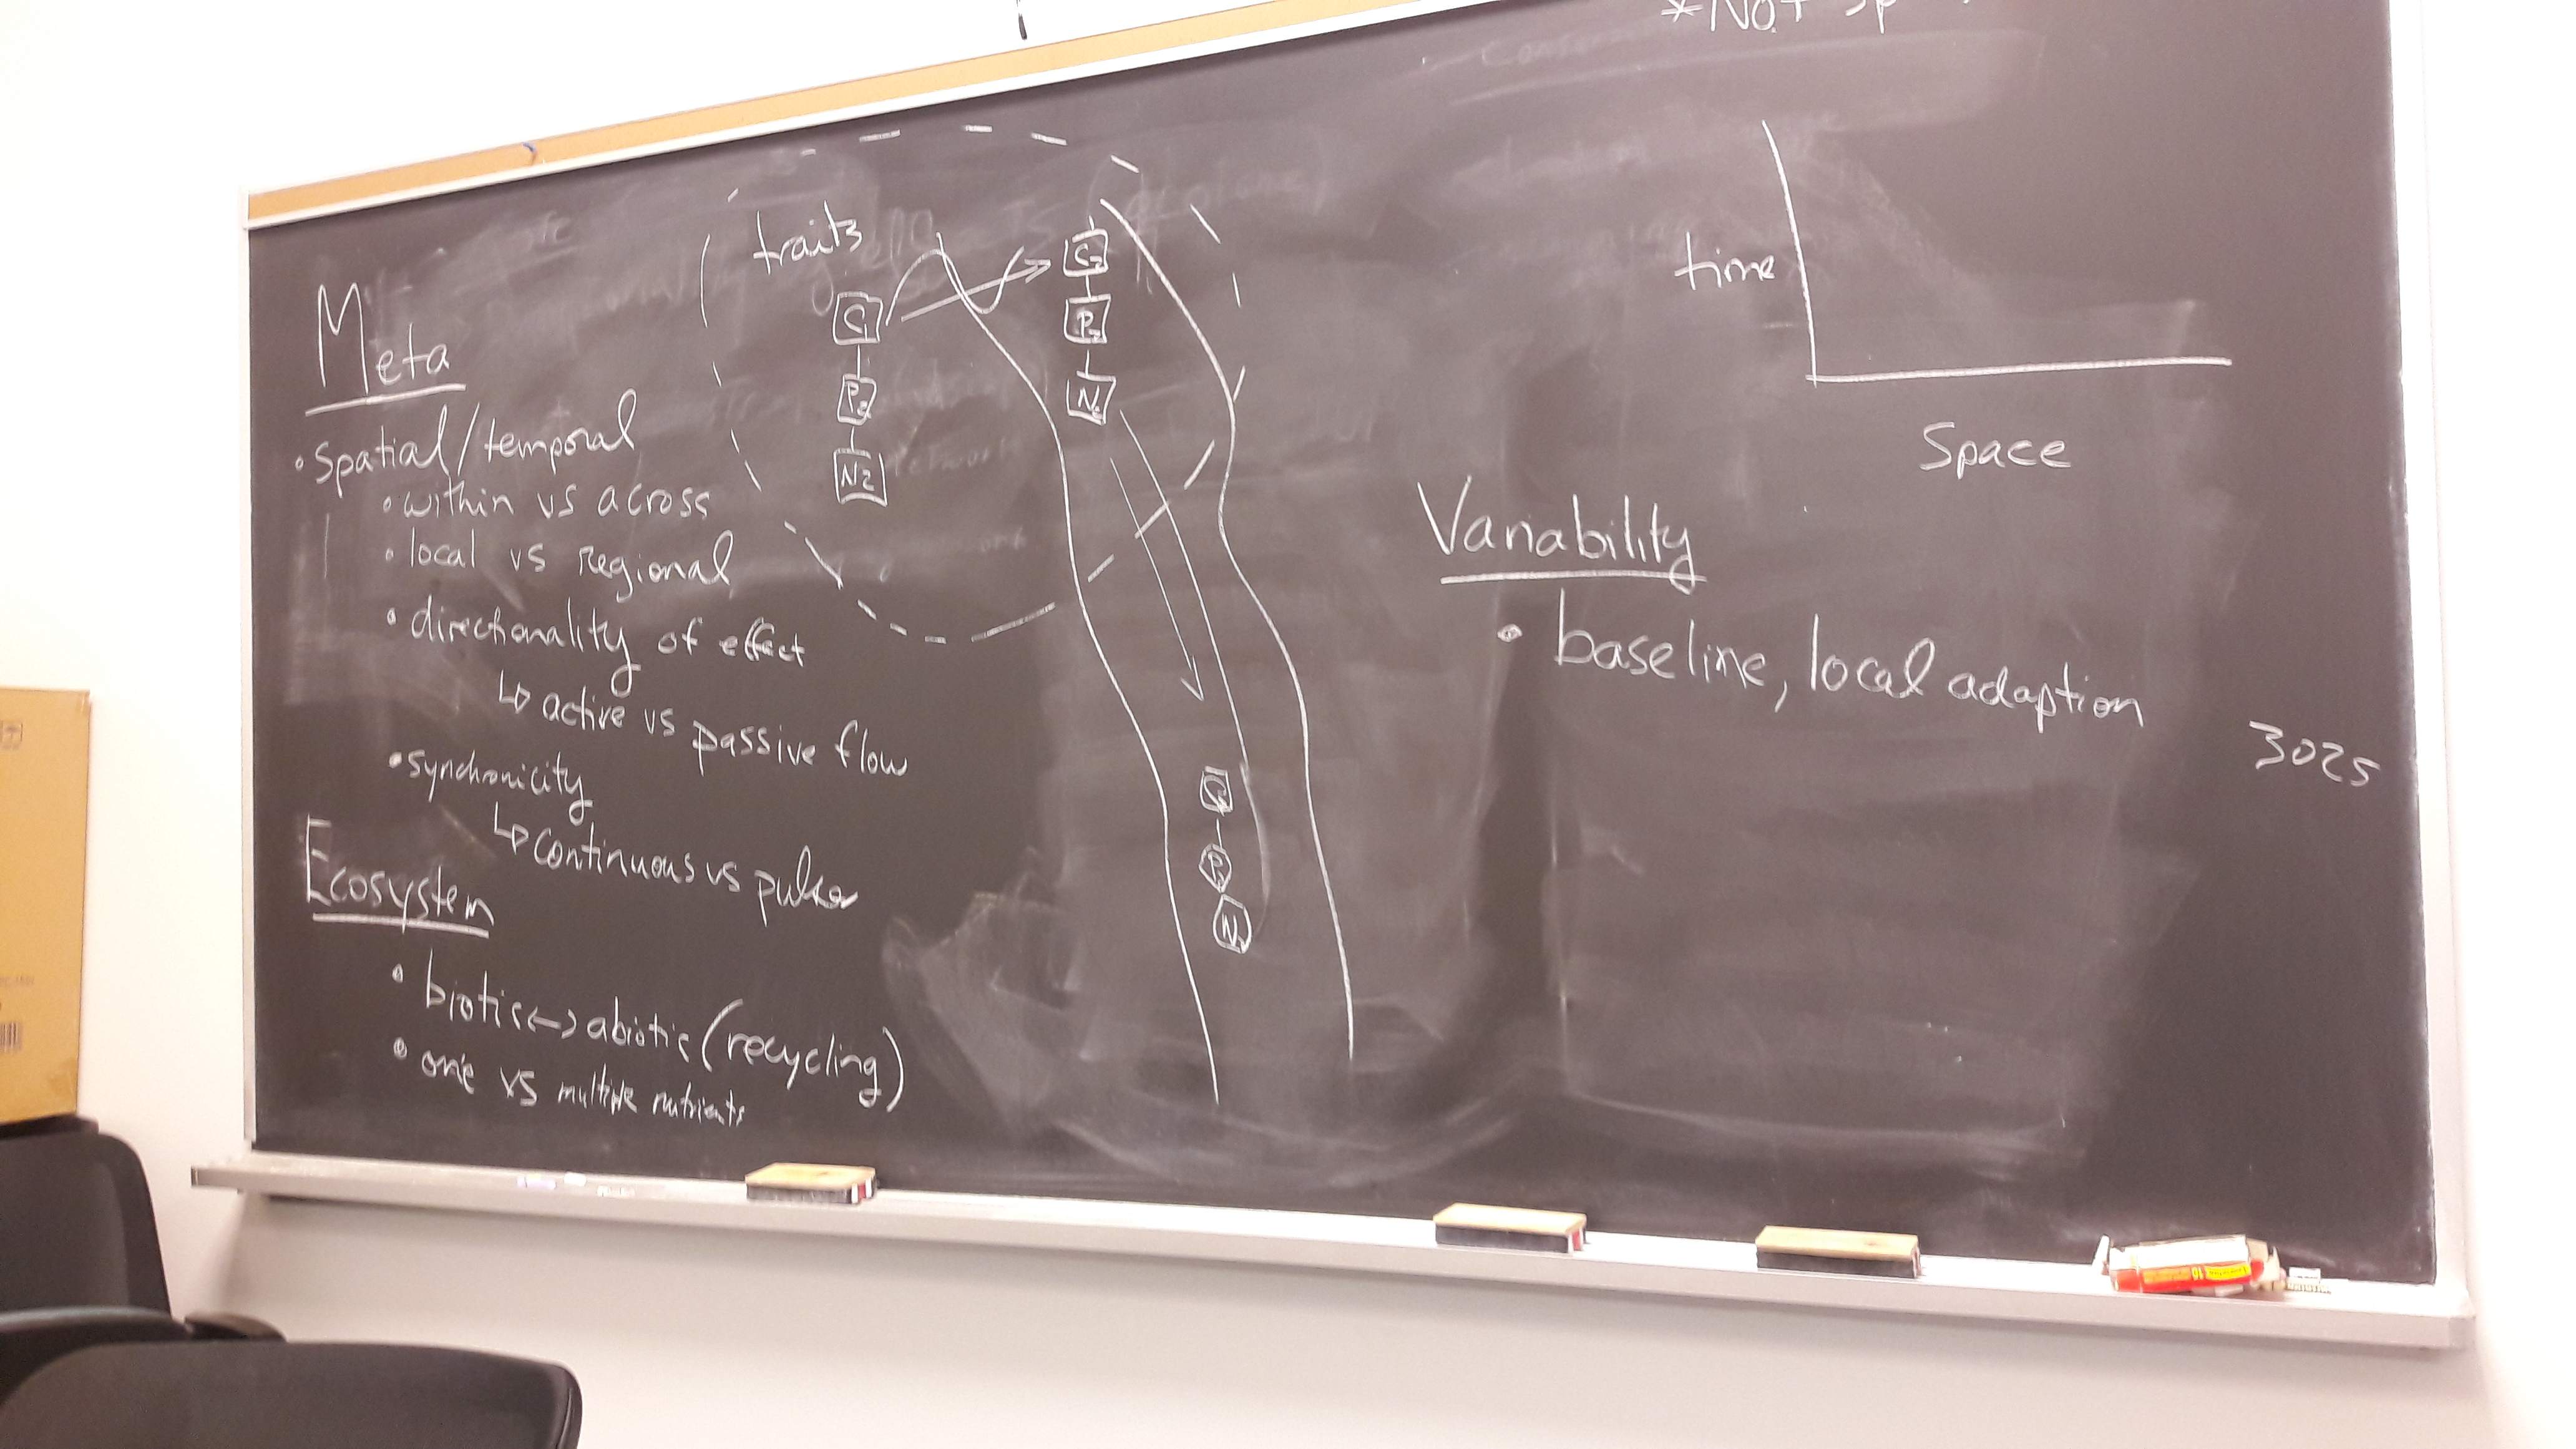 *Not sp
traits
Meta
• Spatial/temporal
• within vs across
• local vs regional
• directionality of effect
↳ active vs passive flow
• synchronicity
↳ continuous vs pulse
Ecosystem
• biotic <-> abiotic (recycling)
• one vs multiple nutrients
C1
P2
N2
C2
P2
N2
P
N
time
Space
Variability
• baseline, local adaption
3025